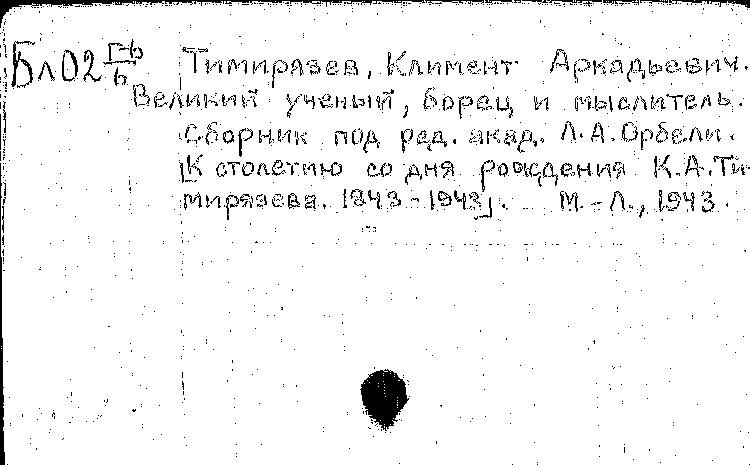 Бл02 Г-6/6 Тимирязев, Климент Аркадьевич.
Великий ученый, борец и мыслитель.
Сборник под ред. акад. Л.А.Орбели.
[К столетию со дня рождения К.А.Ти-
мирязева. 1843-1943]. М.-Л., 1943.